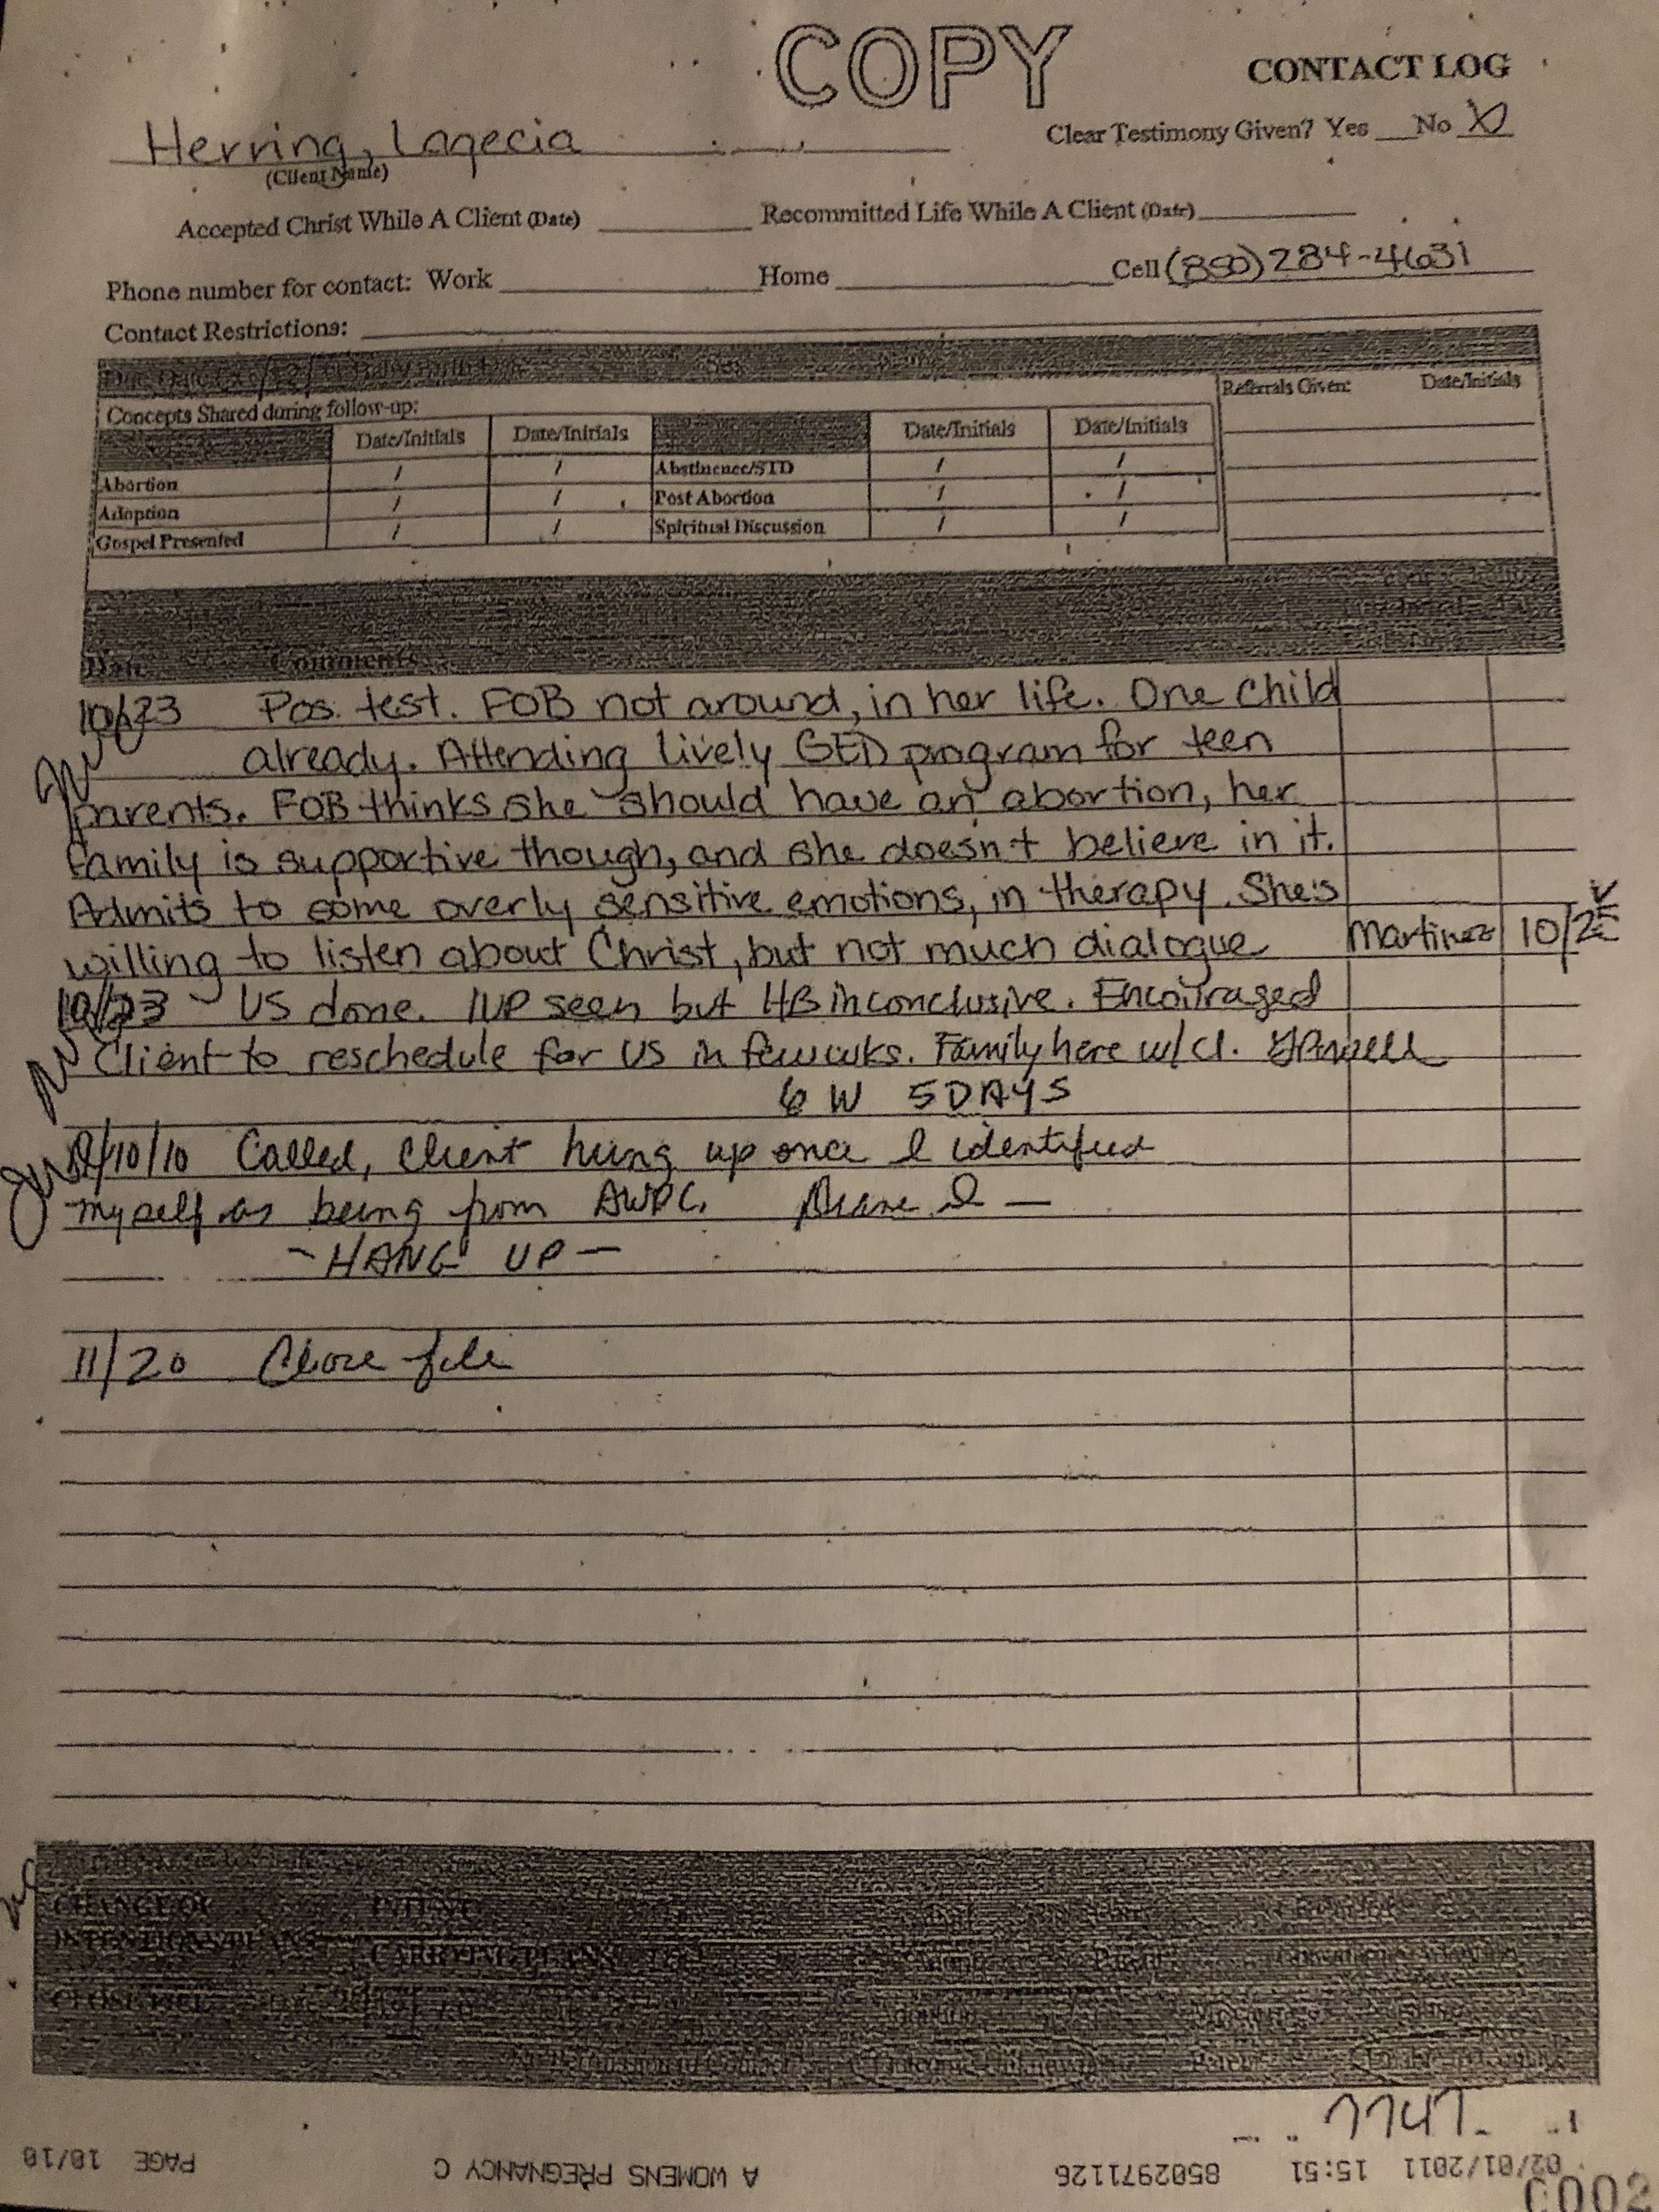 COPY
CONTACT LOG
Herring, Laqecia
Clear Testimony Given? Yes No X
(Client Name)
Accepted Christ While A Client (Date) Recommitted Life While A Client (Date)
Phone number for contact: Work Home Cell (850) 284-4631
Contact Restrictions:
Concepts Shared during follow-up: Referrals Given: Date/Initials
Date/Initials Date/Initials Date/Initials Date/Initials
Abortion / / Abstinence/STD / /
Adoption / / Post Abortion / /
Gospel Presented / / Spiritual Discussion / /
Date Comments
10/23 Pos. test. FOB not around, in her life. One Child
already. Attending lively GED program for teen
parents. FOB thinks she should have an abortion, her
family is supportive though, and she doesn't believe in it.
Admits to some overly sensitive emotions, in therapy. She's
willing to listen about Christ, but not much dialogue Martinez 10/25
10/23 US done. IUP seen but HB inconclusive. Encouraged
Client to reschedule for US in few wks. Family here w/cl.
6 W 5 DAYS
/10/10 Called, Client hung up once I identified
myself as being from AWPC.
- HANG UP -
11/20 Close file
CHANGE OF INTENT
INTENTIONS/PLANS CARRYING/PLANS TO
CLOSE FILE
7747
02/01/2011 15:51 8502971126 A WOMENS PREGNANCY C PAGE 10/10
0002